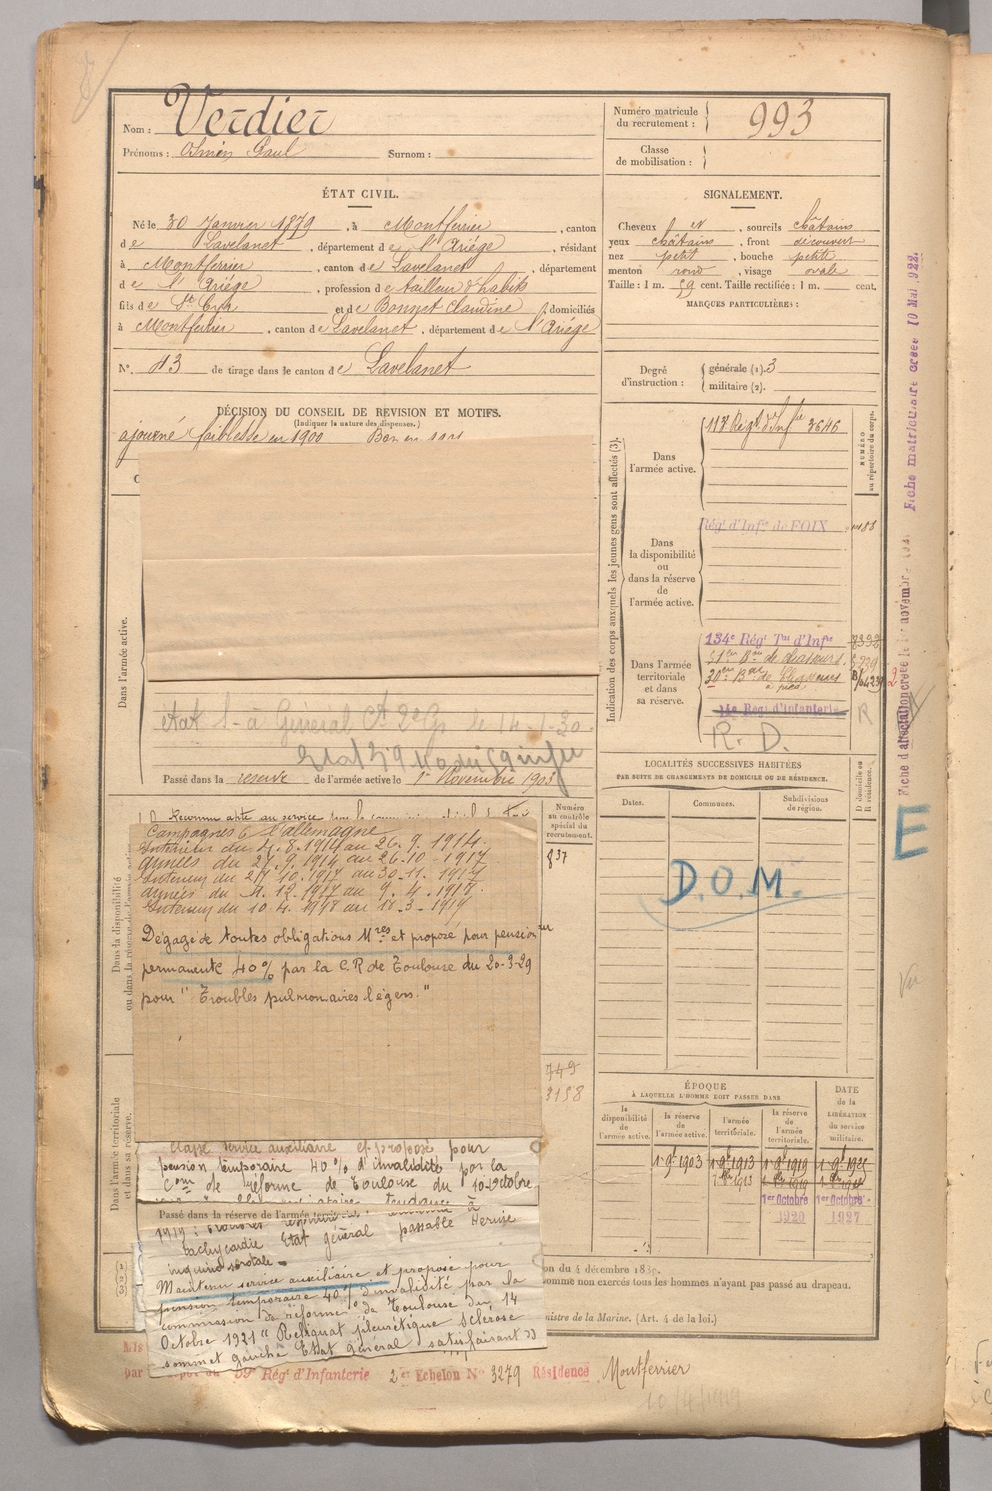 Nom : Verdier
Prénoms : Paul Surnom :
ÉTAT CIVIL.
Né le 30 Janvier 1879, à Montferrier, canton
de Lavelanet, département de l'Ariége, résidant
à Montferrier, canton de Lavelanet, département
de l'Ariége, profession de tailleur d'habits
fils de et de Claudine, domiciliés
à Montferrier, canton de Lavelanet, département de l'Ariége
N° 43 de tirage dans le canton de Lavelanet
DÉCISION DU CONSEIL DE REVISION ET MOTIFS.
(Indiquer la nature des dispenses.)
ajourné faiblesse en 1900 Bon en 1901
Dans l'armée active.
État 1 - à Général Ct 2e G de 14-1-30.
Passé dans la reserve de l'armée active le 1er Novembre 1903
Dans la disponibilité
ou dans la réserve de l'armée active
Reconnu apte au service
Numéro
au contrôle
spécial du
recrutement.
837
Campagnes c. l'allemagne
Intérieur du 4.8.1914 au 26.9.1914.
armées du 27.9.1914 au 26.10.1917.
Intérieur du 27.10.1917 au 30.11.1917
armées du 4.12.1917 au 9.4.1917.
Intérieur du 10.4.1918 au 11-3-1919
Dégagé de toutes obligations Mres et proposé pour pension
permanente 40% par la C.R de Toulouse du 20-3-29
pour " Troubles pulmonaires légers."
749
3158
Dans l'armée territoriale
et dans sa réserve.
Classé service auxiliaire et proposé pour
pension temporaire 40% d'invalidité par la
Com de réforme de Toulouse du 10 octobre
Passé dans la réserve de l'armée territoriale
1919 : troubles tendance à
tachycardie Etat général passable Hernie
inguino scrotale.
Maintenu service auxiliaire et proposé pour
pension temporaire 40% d'invalidité par la
commission de réforme de Toulouse du 14
Octobre 1921 "Reliquat pleurétique sclérose
sommet gauche Etat général satisfaisant"
59e Régt d'Infanterie 2e Echelon No 3279 Résidence Montferrier
10/4/1919
Numéro matricule
du recrutement : 993
Classe
de mobilisation :
SIGNALEMENT.
Cheveux et sourcils châtains
yeux châtains, front découvert
nez petit, bouche petite
menton rond, visage ovale
Taille : 1 m. 59 cent. Taille rectifiée : 1 m. cent.
MARQUES PARTICULIÈRES :
Degré
d'instruction :
générale (1). 3
militaire (2).
Indication des corps auxquels les jeunes gens sont affectés (3).
NUMÉRO
au répertoire du corps.
Dans
l'armée active.
Régt d'Inf 3646
Dans
la disponibilité
ou
dans la réserve
de
l'armée active.
Régt d'Infie de FOIX
Dans l'armée
territoriale
et dans
sa réserve.
134e Régt Tal d'Infie
Bon de chasseurs
30em à pied
14e Régt d'Infanterie
R
R. D.
LOCALITÉS SUCCESSIVES HABITÉES
PAR SUITE DE CHANGEMENTS DE DOMICILE OU DE RÉSIDENCE.
Dates. Communes. Subdivisions
de région.
D domicile ou
R résidence.
D.O.M.
ÉPOQUE
À LAQUELLE L'HOMME DOIT PASSER DANS
la
disponibilité
de
l'armée active.
la réserve
de
l'armée active.
l'armée
territoriale.
la réserve
de
l'armée
territoriale.
DATE
de la
LIBÉRATION
du service
militaire.
1 9bre 1903 1 9bre 1913 1 9bre 1919
1er Octobre 1er Octobre
1920 1927
on du 4 décembre 18
omme non exercés tous les hommes n'ayant pas passé au drapeau.
nistre de la Marine. (Art. 4 de la loi.)
Fiche matriculaire créée 10 Mai 1922.
Fiche d'affectation créée le 1er novembre
E